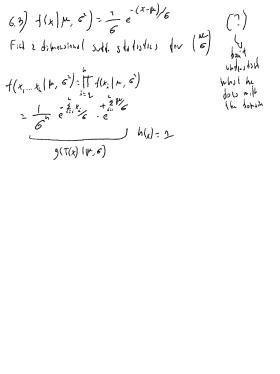 6.3) f(x|μ, σ²) = 1/σ e^{-(x-μ)/σ} (?)
Find 2 dimensional suff. statistics for (μ σ)
don't understand what he does with the domain
f(x₁...xₙ|μ, σ²) = ∏_{i=1}^{n} f(xᵢ|μ, σ²)
= 1/σⁿ e^{-∑_{i=1}^{n} xᵢ/σ} · e^{+∑_{i=1}^{n} μ/σ}
g(T(x)|μ, σ) h(x) = 1